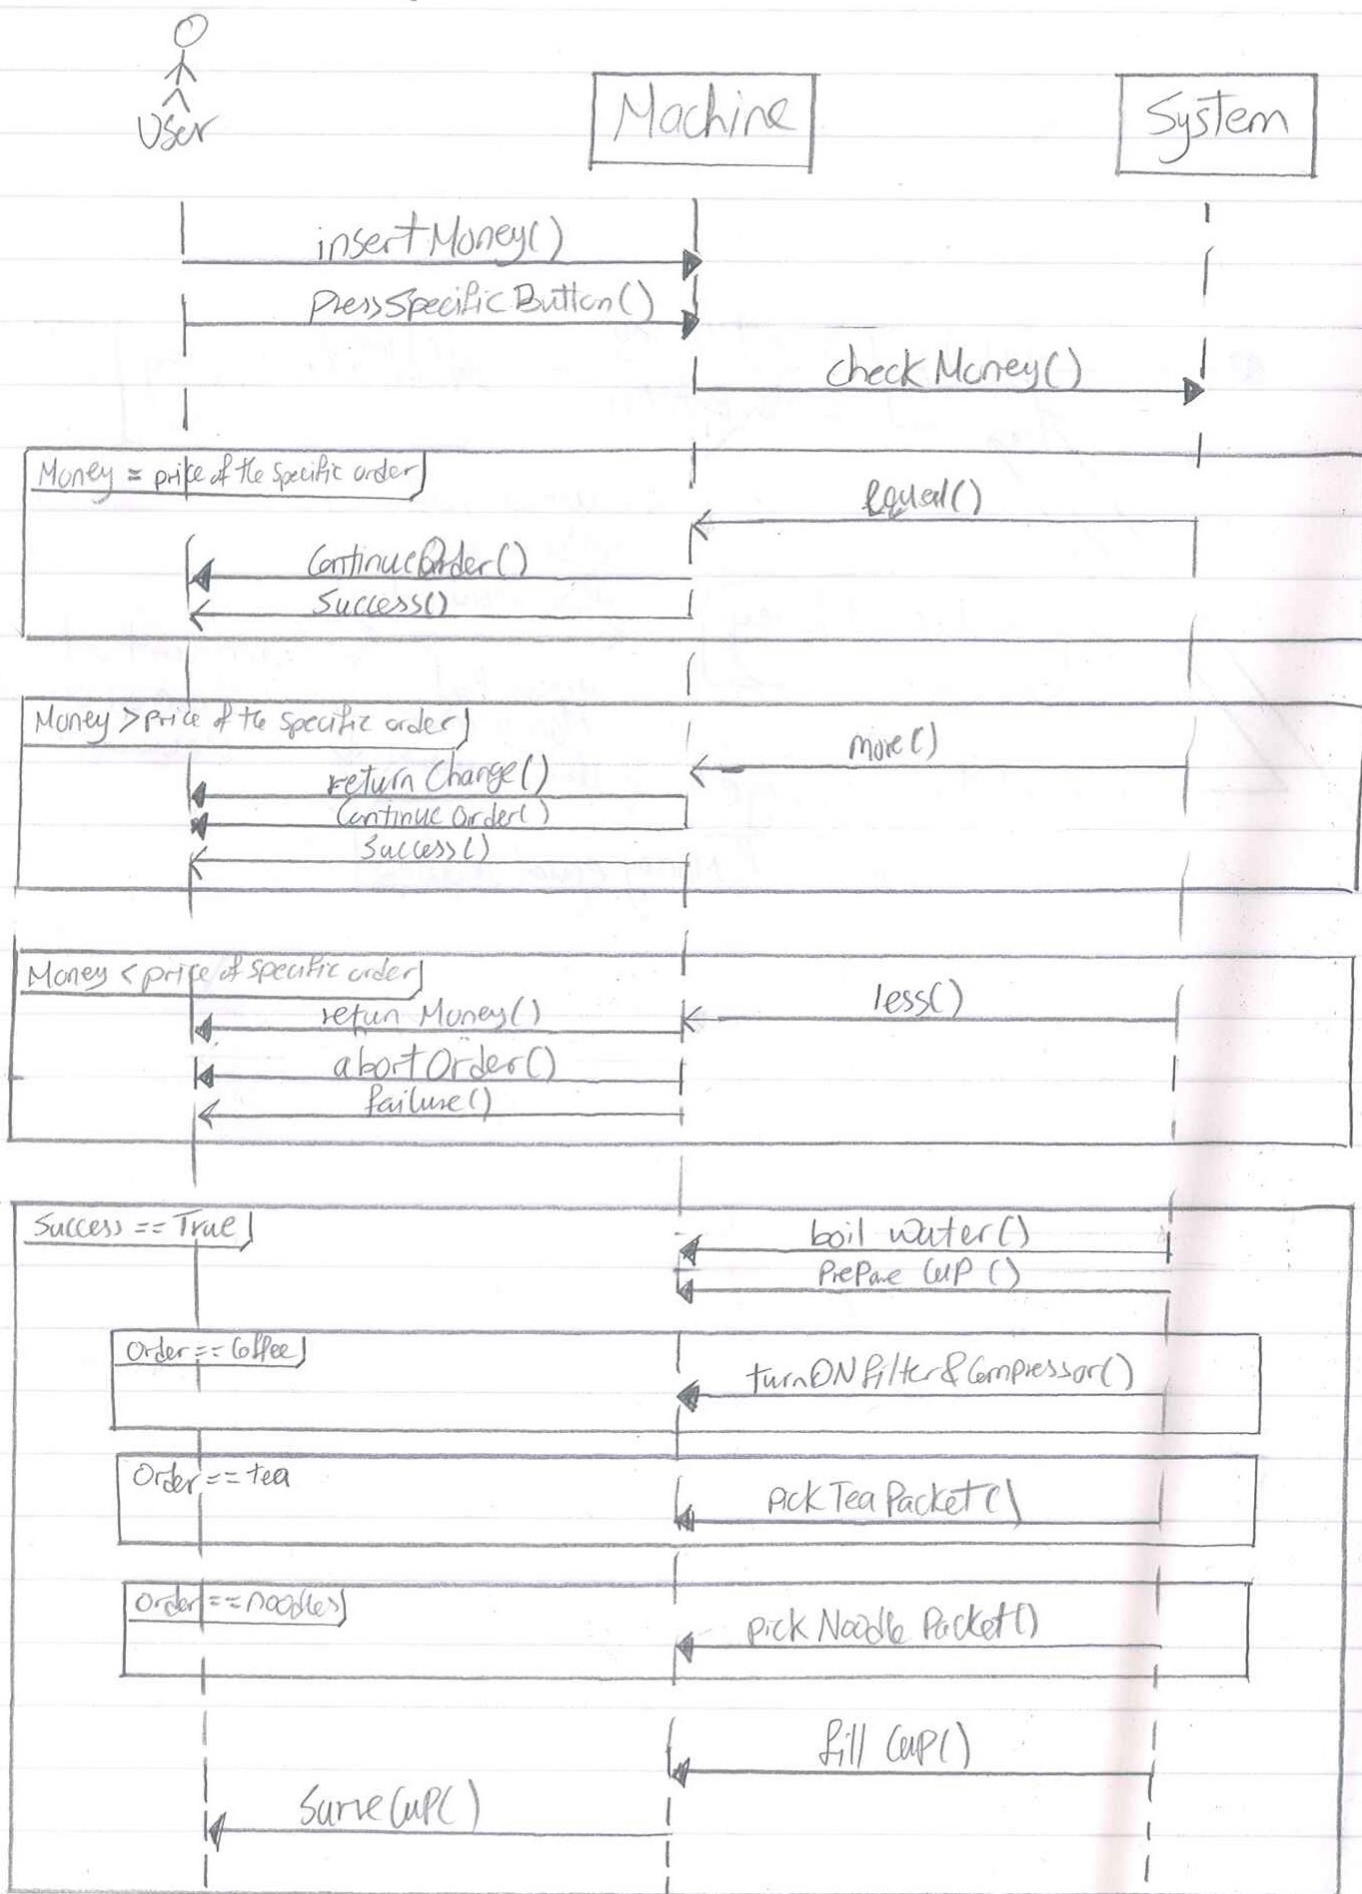 User
Machine
System
insertMoney()
PressSpecificButton()
checkMoney()
Money = price of the specific order
Equal()
ContinueOrder()
Success()
Money > price of the specific order
more()
return Change()
Continue Order()
Success()
Money < price of specific order
less()
retun Money()
abortOrder()
failure()
Success == True
boil water()
PrePare CuP ()
Order == Coffee
turnONfilter&Compressor()
Order == tea
pickTeaPacket()
Order == noodles
pickNoodlePacket()
fill CuP()
SurveCuP()